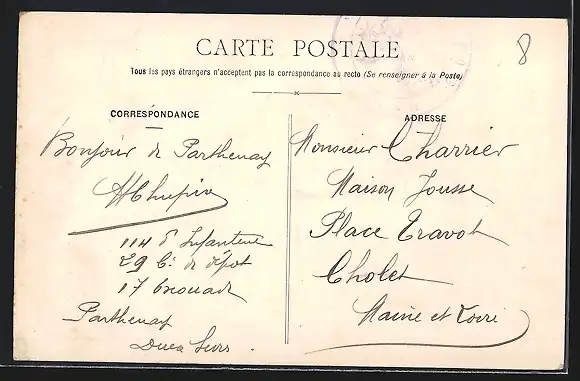 CARTE POSTALE
Tous les pays étrangers n'acceptent pas la correspondance au recto (Se renseigner à la Poste)
8
CORRESPONDANCE
Bonjour de Parthenay
114 e Infanterie
29 Cie de dépôt
17 Escouade
Parthenay
Deux Sèvres
ADRESSE
Monsieur Charrier
Maison Jousse
Place Travot
Cholet
Maine et Loire